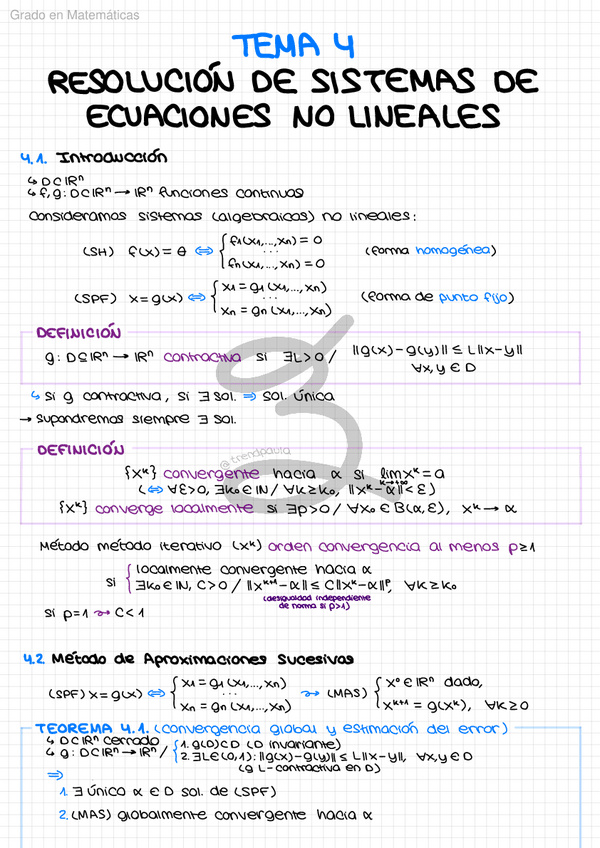 Grado en Matemáticas
TEMA 4
RESOLUCIÓN DE SISTEMAS DE
ECUACIONES NO LINEALES
4.1. Introducción
↳ D⊂ℝⁿ
↳ f,g: D⊂ℝⁿ → ℝⁿ funciones continuas
Consideramos sistemas (algebraicos) no lineales:
(SH) f(x) = θ ⇔ { f₁(x₁,...,xₙ) = 0 ... fₙ(x₁,...,xₙ) = 0 (forma homogénea)
(SPF) x = g(x) ⇔ { x₁ = g₁(x₁,...,xₙ) ... xₙ = gₙ(x₁,...,xₙ) (forma de punto fijo)
DEFINICIÓN
g: D⊆ℝⁿ → ℝⁿ contractiva si ∃L>0 / ||g(x)-g(y)|| ≤ L||x-y||
∀x,y ∈ D
↳ Si g contractiva, si ∃ sol. ⇒ sol. única
→ Supondremos siempre ∃ sol.
DEFINICIÓN
@trendpaula
{xᵏ} convergente hacia α si lim xᵏ = a
k→+∞
(⇔ ∀ε>0, ∃k₀∈ℕ / ∀k≥k₀, ||xᵏ-α||<ε)
{xᵏ} converge localmente si ∃ρ>0 / ∀x₀ ∈ B(α,ε), xᵏ → α
Método método iterativo (xᵏ) orden convergencia al menos p≥1
si { localmente convergente hacia α
∃k₀∈ℕ, C>0 / ||xᵏ⁺¹-α|| ≤ C||xᵏ-α||ᵖ, ∀k≥k₀
(desigualdad independiente
de norma si p>1)
Si p=1 ⇝ C<1
4.2. Método de Aproximaciones Sucesivas
(SPF) x = g(x) ⇔ { x₁ = g₁(x₁,...,xₙ) ... xₙ = gₙ(x₁,...,xₙ) ⇝ (MAS) { x⁰ ∈ ℝⁿ dado, xᵏ⁺¹ = g(xᵏ), ∀k≥0
TEOREMA 4.1. (convergencia global y estimación del error)
↳ D⊂ℝⁿ cerrado
↳ g: D⊂ℝⁿ → ℝⁿ / { 1. g(D)⊂D (D invariante)
2. ∃L∈(0,1): ||g(x)-g(y)|| ≤ L||x-y||, ∀x,y ∈ D
(g L-contractiva en D)
⇒
1. ∃ único α ∈ D sol. de (SPF)
2. (MAS) globalmente convergente hacia α